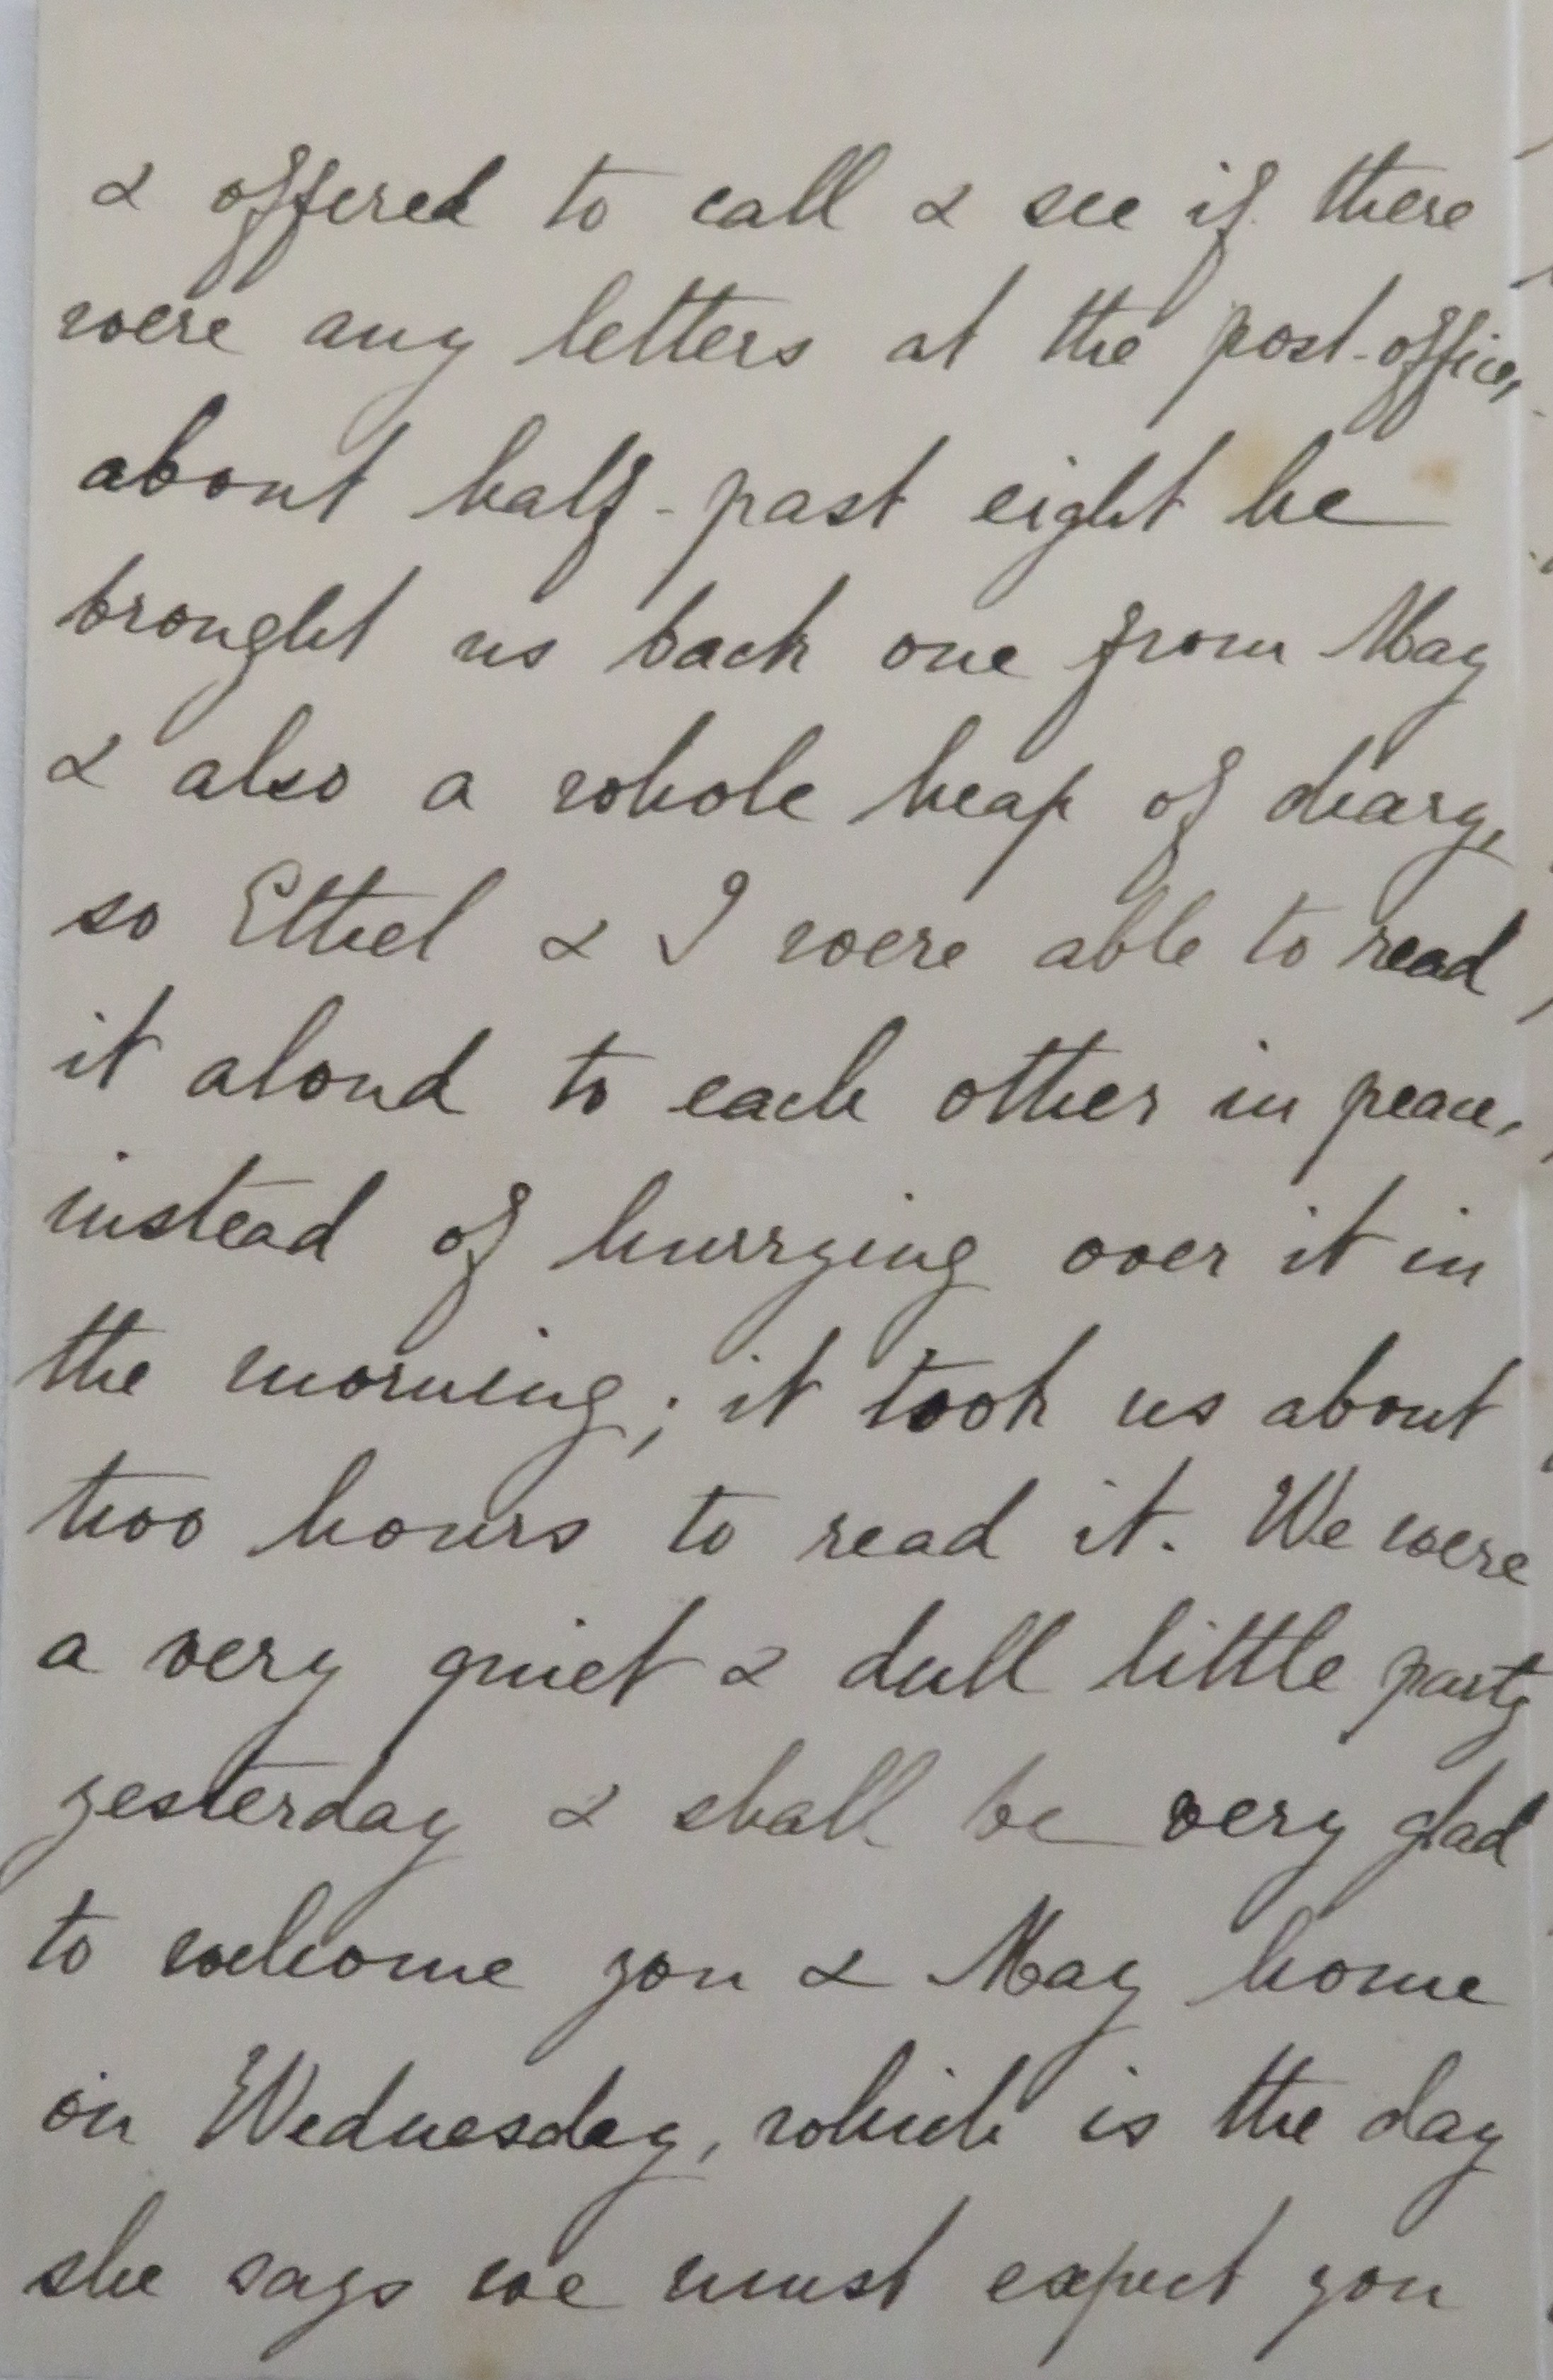 & offered to call & see if there
were any letters at the post-office,
about half-past eight he
brought us back one from May
& also a whole heap of diary,
so Ethel & I were able to read
it aloud to each other in peace,
instead of hurrying over it in
the morning; it took us about
two hours to read it. We were
a very quiet & dull little party
yesterday & shall be very glad
to welcome you & May home
on Wednesday, which is the day
she says we must expect you